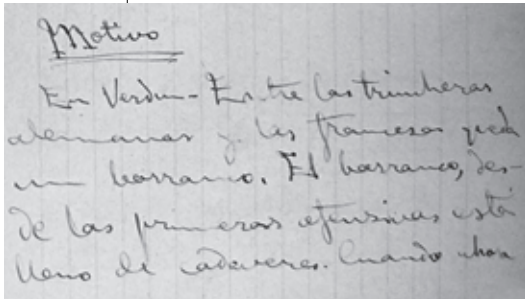 Motivo
En Verdun - Entre las trincheras
alemanas y las francesas queda
un barranco. El barranco, des-
de las primeras ofensivas está
lleno de cadáveres. Cuando